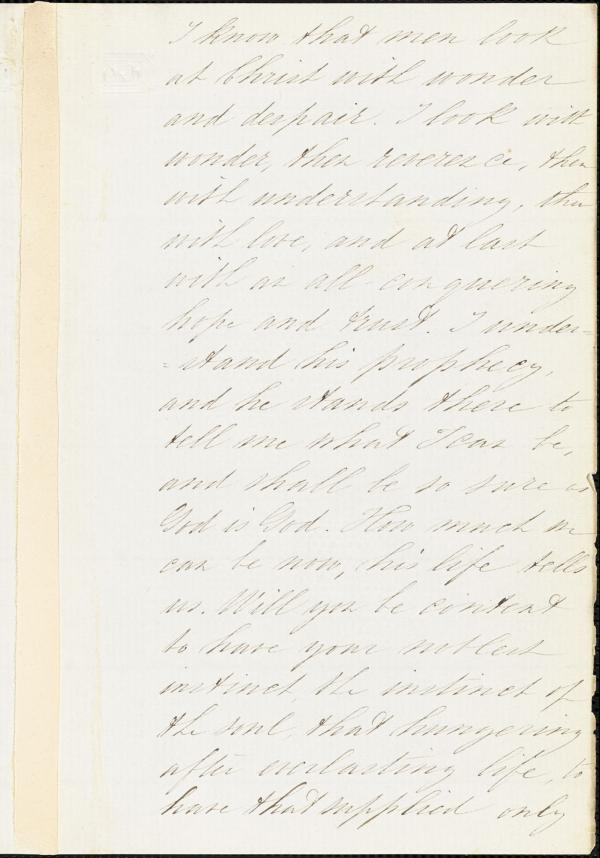 I know that men look
at Christ with wonder
and despair. I look with
wonder, then reverence, then
with understanding, then
with love, and at last
with an all-conquering
hope and trust. I under=
=stand his prophecy,
and he stands there to
tell me what I can be,
and shall be so sure as
God is God. How much we
can be now, his life tells
us. Will you be content
to have your noblest
instinct, the instinct of
the soul, that hungering
after everlasting life, to
have that supplied only